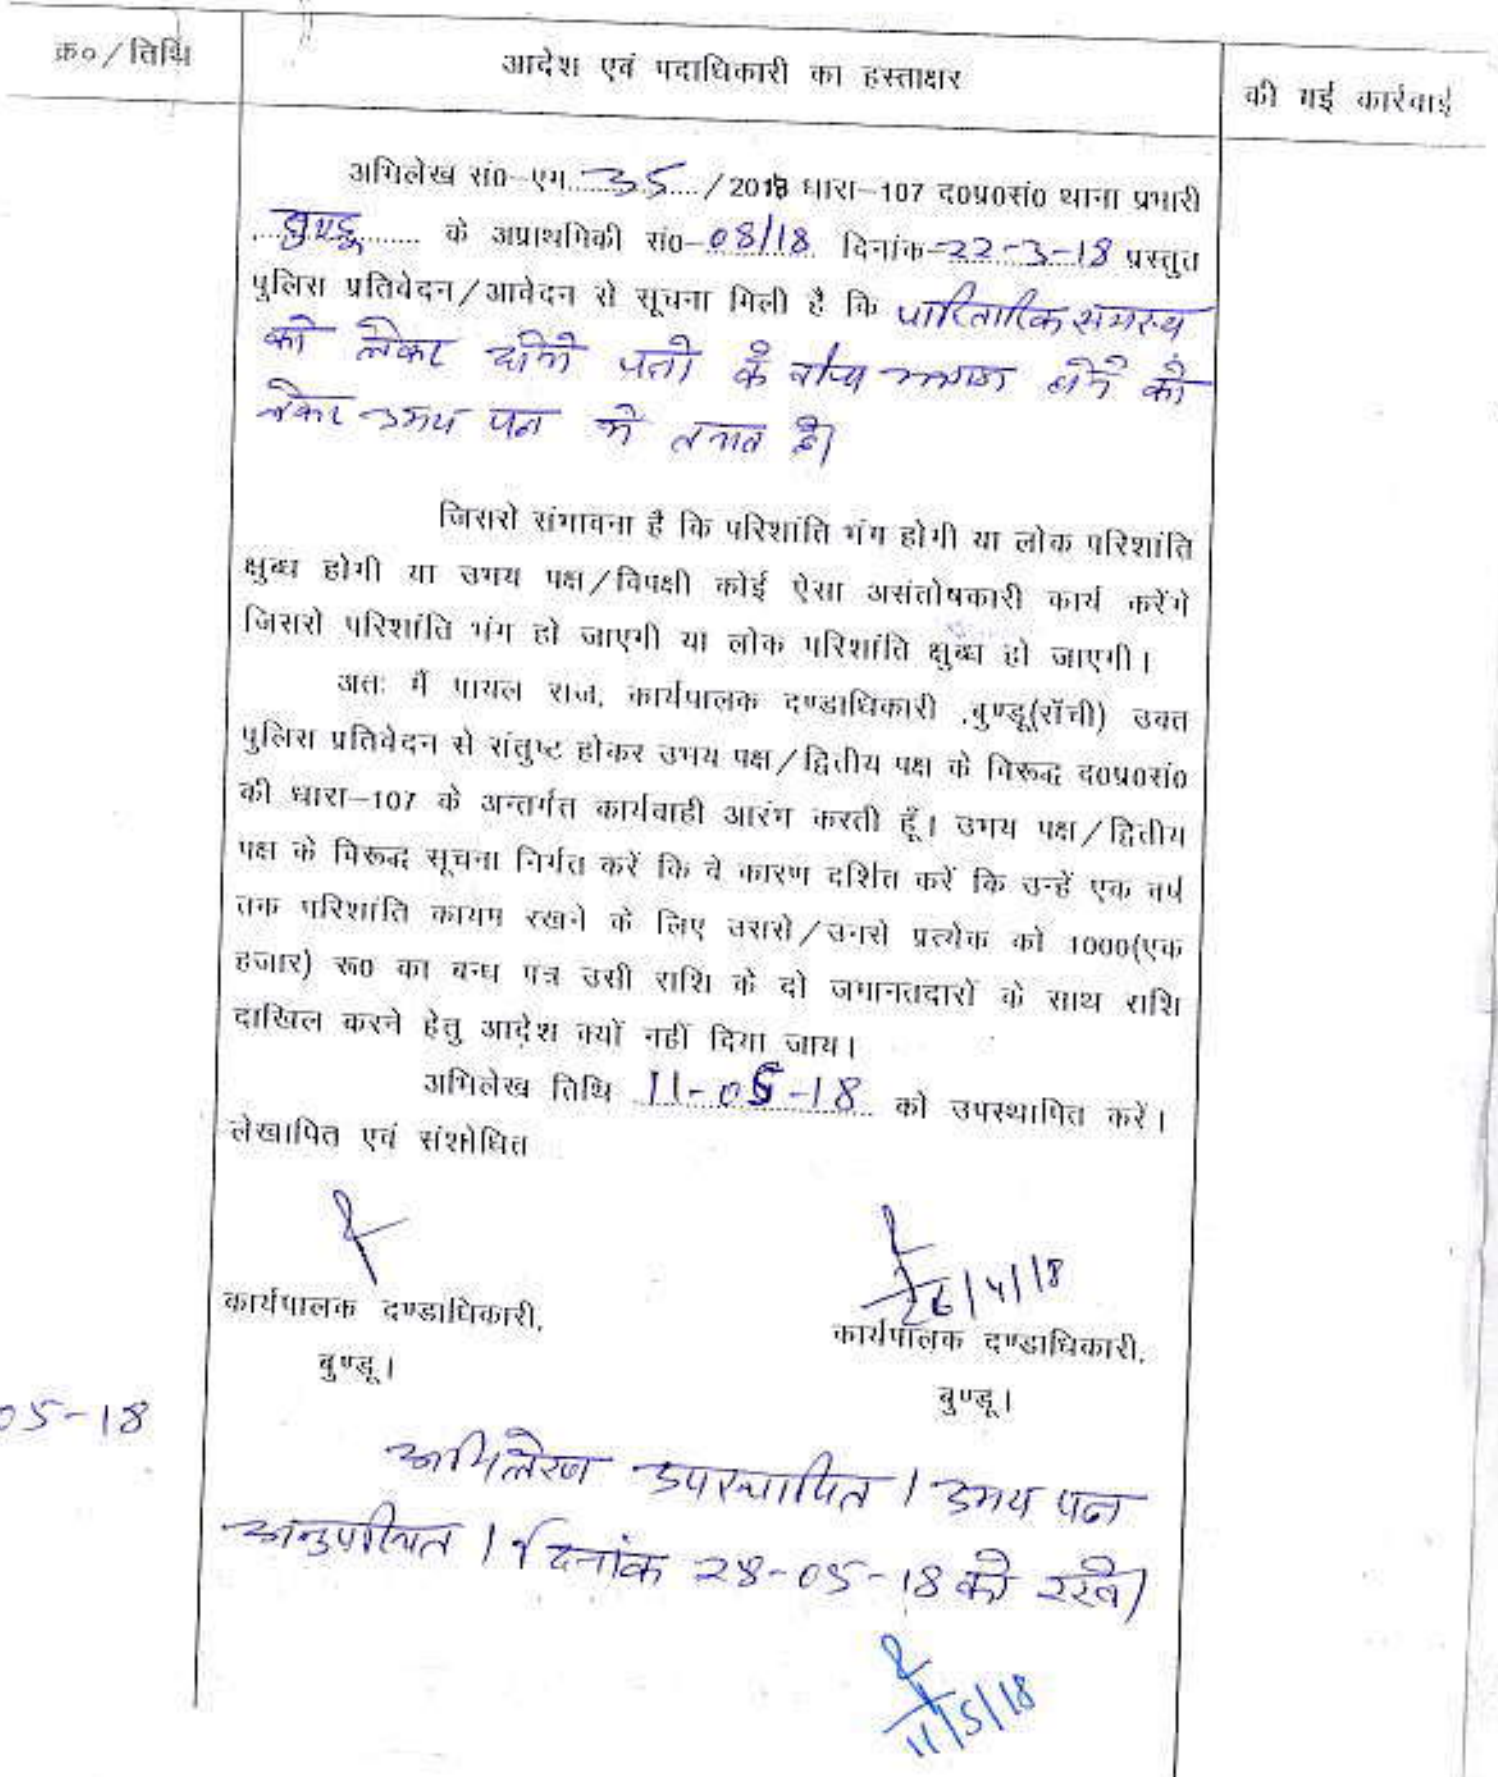 क्र० / तिथि
आदेश एवं पदाधिकारी का हस्ताक्षर
की गई कार्रवाई
अभिलेख सं0-एम 35 / 2018 धारा-107 द0प्र0सं0 थाना प्रभारी
बुण्डू के अप्राथमिकी सं0- 08/18 दिनांक- 22-3-18 प्रस्तुत
पुलिस प्रतिवेदन / आवेदन से सूचना मिली है कि पारिवारिक समस्य
को लेकर दोनों पक्षो के बीच झगड़ा होने को
लेकर उभय पक्ष में तनाव है।
जिससे संभावना है कि परिशांति भंग होगी या लोक परिशांति
क्षुब्ध होगी या उभय पक्ष / विपक्षी कोई ऐसा असंतोषकारी कार्य करेंगे
जिससे परिशांति भंग हो जाएगी या लोक परिशांति क्षुब्ध हो जाएगी।
अतः मैं पायल राज, कार्यपालक दण्डाधिकारी ,बुण्डू(राँची) उक्त
पुलिस प्रतिवेदन से संतुष्ट होकर उभय पक्ष / द्वितीय पक्ष के विरूद्ध द0प्र0सं0
की धारा-107 के अन्तर्गत कार्यवाही आरंभ करती हूँ। उभय पक्ष / द्वितीय
पक्ष के विरूद्ध सूचना निर्गत करें कि वे कारण दर्शित करें कि उन्हें एक वर्ष
तक परिशांति कायम रखने के लिए उससे / उनसे प्रत्येक को 1000(एक
हजार) रू0 का बन्ध पत्र उसी राशि के दो जमानतदारों के साथ राशि
दाखिल करने हेतु आदेश क्यों नहीं दिया जाय।
अभिलेख तिथि 11-05-18 को उपस्थापित करें।
लेखापित एवं संशोधित
26/4/18
कार्यपालक दण्डाधिकारी,
कार्यपालक दण्डाधिकारी,
बुण्डू।
बुण्डू।
05-18
अभिलेख उपस्थापित । उभय पक्ष
अनुपस्थित । दिनांक 28-05-18 को रखें।
11/5/18